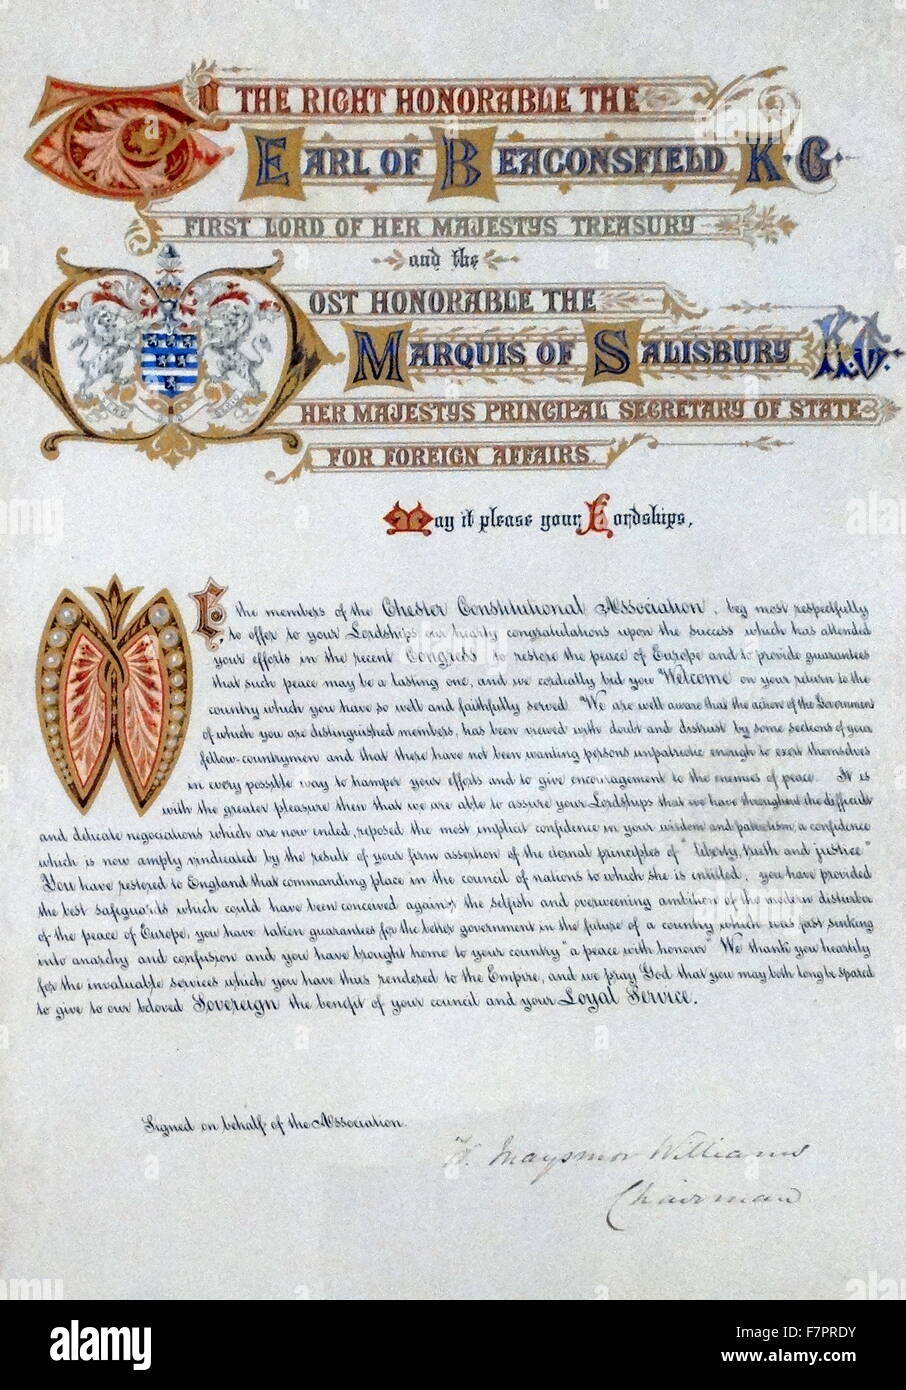 TO THE RIGHT HONORABLE THE
EARL OF BEACONSFIELD K.G.
FIRST LORD OF HER MAJESTYS TREASURY
and the
MOST HONORABLE THE
MARQUIS OF SALISBURY K.G.
HER MAJESTYS PRINCIPAL SECRETARY OF STATE
FOR FOREIGN AFFAIRS.
May it please your Lordships,
WE, the members of the Chester Constitutional Association, beg most respectfully
to offer to your Lordships our hearty congratulations upon the success which has attended
your efforts in the recent Congress to restore the peace of Europe and to provide guarantees
that such peace may be a lasting one, and we cordially bid you "Welcome" on your return to the
country which you have so well and faithfully served. We are well aware that the action of the Government
of which you are distinguished members, has been viewed with doubt and distrust by some sections of your
fellow-countrymen and that there have not been wanting persons unpatriotic enough to exert themselves
in every possible way to hamper your efforts and to give encouragement to the enemies of peace. It is
with the greater pleasure then that we are able to assure your Lordships that we have throughout the difficult
and delicate negociations which are now ended, reposed the most implicit confidence in your wisdom and patriotism, a confidence
which is now amply vindicated by the result of your firm assertion of the eternal principles of "liberty, truth and justice"
You have restored to England that commanding place in the council of nations to which she is entitled, you have provided
the best safeguards which could have been conceived against the selfish and overweening ambition of the modern disturber
of the peace of Europe, you have taken guarantees for the better government in the future of a country which was fast sinking
into anarchy and confusion and you have brought home to your country "a peace with honour" We thank you heartily
for the invaluable services which you have thus rendered to the Empire, and we pray God that you may both long be spared
to give to our beloved Sovereign the benefit of your council and your Loyal Service.
Signed on behalf of the Association.
W. Maysmor Williams
Chairman
alamy
Image ID: F7PRDY
www.alamy.com